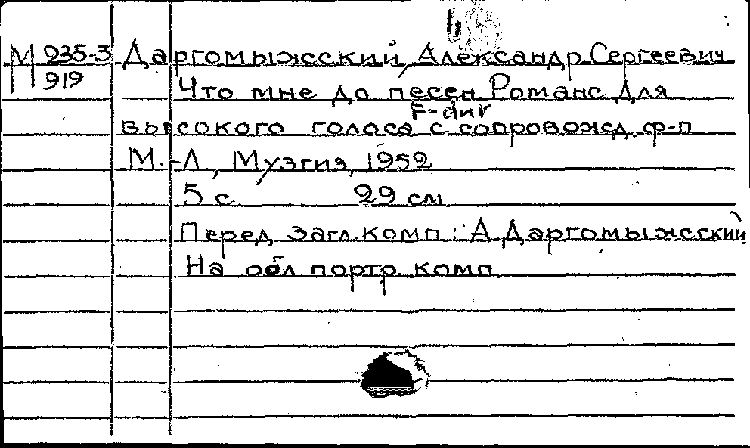 М 235-3 Даргомыжский, Александр Сергеевич
919 Что мне до песен Романс для
F-dur
высокого голоса с сопровожд. ф-п
М.-Л., Музгиз, 1952
5 с. 29 см
Перед загл. комп.: А. Даргомыжсский
На обл. портр. комп.